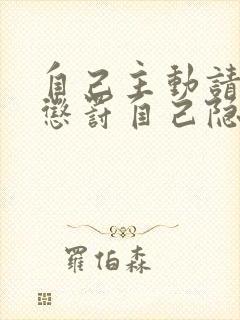 自己主動請
懲罰自己隐
羅伯森